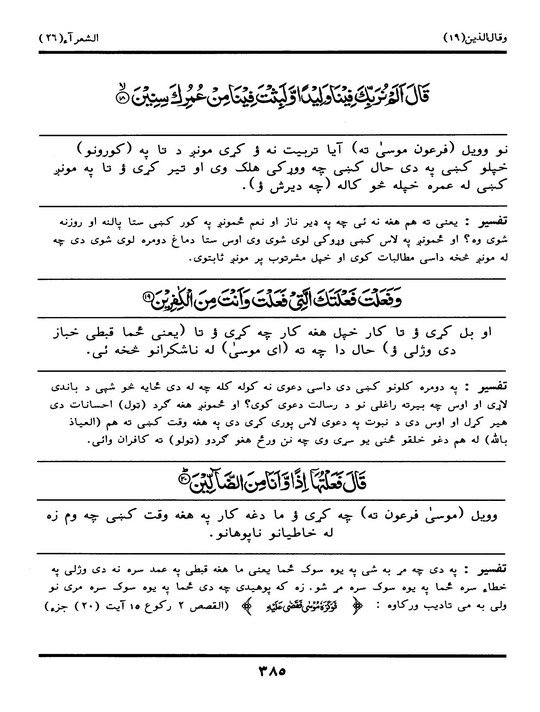 وقال الذین(۱۹) الشعرآء(۲۶)
قَالَ اَلَمْ نُرَبِّكَ فِیْنَا وَلِیْدًا وَّ لَبِثْتَ فِیْنَا مِنْ عُمُرِكَ سِنِیْنَ ۱۸
نو وویل (فرعون موسیٰ ته) آیا تربیت نه ؤ کړی مونږ د تا په (کورونو)
خپلو کښی په دی حال کښی چه ووړکی هلک وی او تیر کړی ؤ تا په مونږ
کښی له عمره خپله څو کاله (چه دیرش ؤ).
تفسیر : یعنی ته هم هغه نه ئی چه په ډیر ناز او نعم څمونږ په کور کښی ستا پالنه او روزنه
شوی وه؟ او څمونږ په لاس کښی وړوکی لوی شوی وی اوس ستا دماغ دومره لوی شوی دی چه
له مونږ څخه داسی مطالبات کوی او خپل مشرتوب پر مونږ ثابتوی.
وَ فَعَلْتَ فَعْلَتَكَ الَّتِیْ فَعَلْتَ وَ اَنْتَ مِنَ الْكٰفِرِیْنَ ۱۹
او بل کړی ؤ تا کار خپل هغه کار چه کړی ؤ تا (یعنی څما قبطی خباز
دی وژلی ؤ) حال دا چه ته (ای موسیٰ) له ناشکرانو څخه ئی.
تفسیر : په دومره کلونو کښی دی داسی دعوی نه کوله کله چه له دی ځایه څو شپی د باندی
لاړی او اوس چه بیرته راغلی نو د رسالت دعوی کوی؟ او څمونږ هغه ګرد (ټول) احسانات دی
هیر کړل او اوس دی د نبوت په دعوی لاس پوری کړی دی په هغه وقت کښی ته هم (العیاذ
بالله) له هم دغو خلقو ځنی یو سړی وی چه نن ورځ هغو ګردو (ټولو) ته کافران وائی.
قَالَ فَعَلْتُهَاۤ اِذًا وَّ اَنَا مِنَ الضَّآلِّیْنَ ۲۰
وویل (موسیٰ فرعون ته) چه کړی ؤ ما دغه کار په هغه وقت کښی چه وم زه
له خاطیانو ناپوهانو.
تفسیر : په دی چه مړ به شی په یوه سوک څما یعنی ما هغه قبطی په عمد سره نه دی وژلی په
خطاء سره څما په یوه سوک سره مړ شو. زه که پوهیدی چه دی څما په یوه سوک سره مری نو
ولی به می تادیب ورکاوه : ﴿ فَوَكَزَهٗ مُوْسٰی فَقَضٰی عَلَیْهِ ﴾ (القصص ۲ رکوع ۱۵ آیت (۲۰) جزء)
۳۸۵